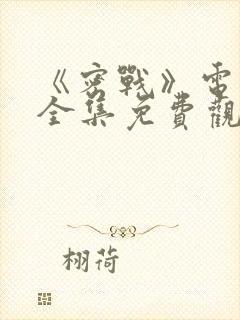 《密戰》電
全集免費觀
栩荷